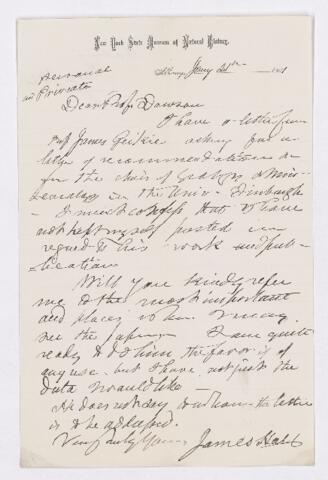 New York State Museum of Natural History,
Personal
and Private
Albany, Jany 1881
Dear Prof. Dawson
I have a letter from
Prof James Geikie asking for a
letter of recommendation
for the chair of Geology & Min-
eralogy in the Univ. Edinburgh
I must confess that I have
not kept myself posted in
regard to his work and pub-
lication
Will you kindly refer
me to the most important
and places where I may
see the papers I am quite
ready to do him the favor if of
any use - but I have not just the
data I would like -
He does not say to whom the letter
is to be addressed.
Very truly yours James Hall